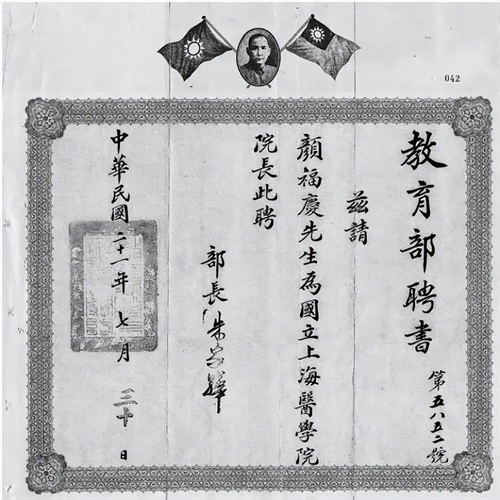 042
教育部聘書
第五八五二號
茲請
顏福慶先生為國立上海醫學院
院長此聘
部長朱家驊
中華民國二十一年七月三十日